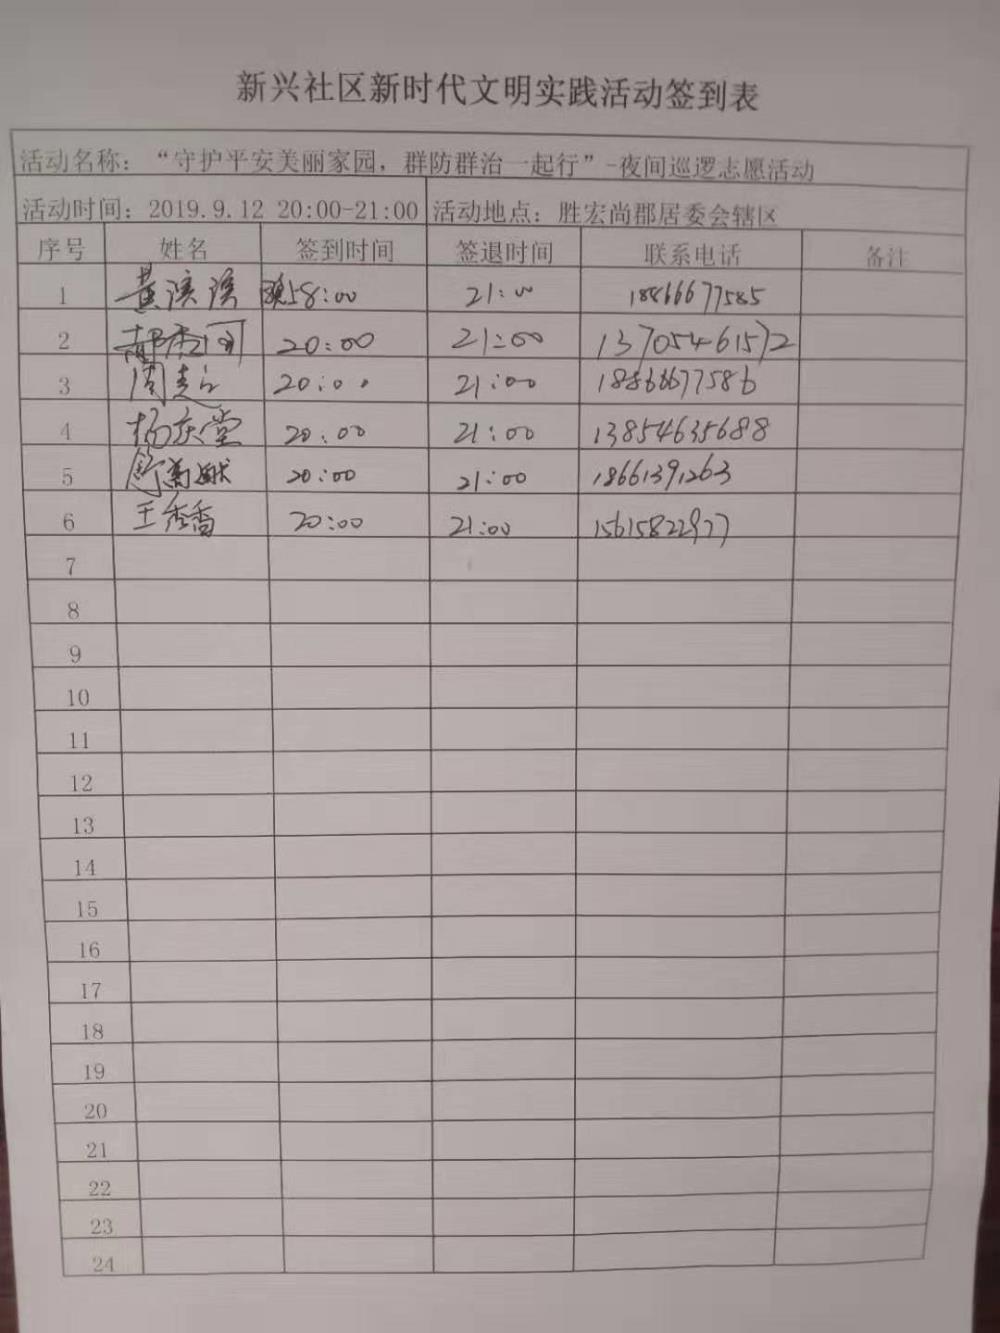 新兴社区新时代文明实践活动签到表
活动名称：“守护平安美丽家园，群防群治一起行”-夜间巡逻志愿活动
活动时间：2019.9.12 20:00-21:00 活动地点：胜宏尚郡居委会辖区
序号 姓名 签到时间 签退时间 联系电话 备注
1 黄滨滨 58:00 21:00 18866677585
2 20:00 21:00 13705461572
3 周 20:00 21:00 18866677586
4 杨庆堂 20:00 21:00 13854635688
5 20:00 21:00 18661391263
6 王秀香 20:00 21:00 15615822977
7
8
9
10
11
12
13
14
15
16
17
18
19
20
21
22
23
24